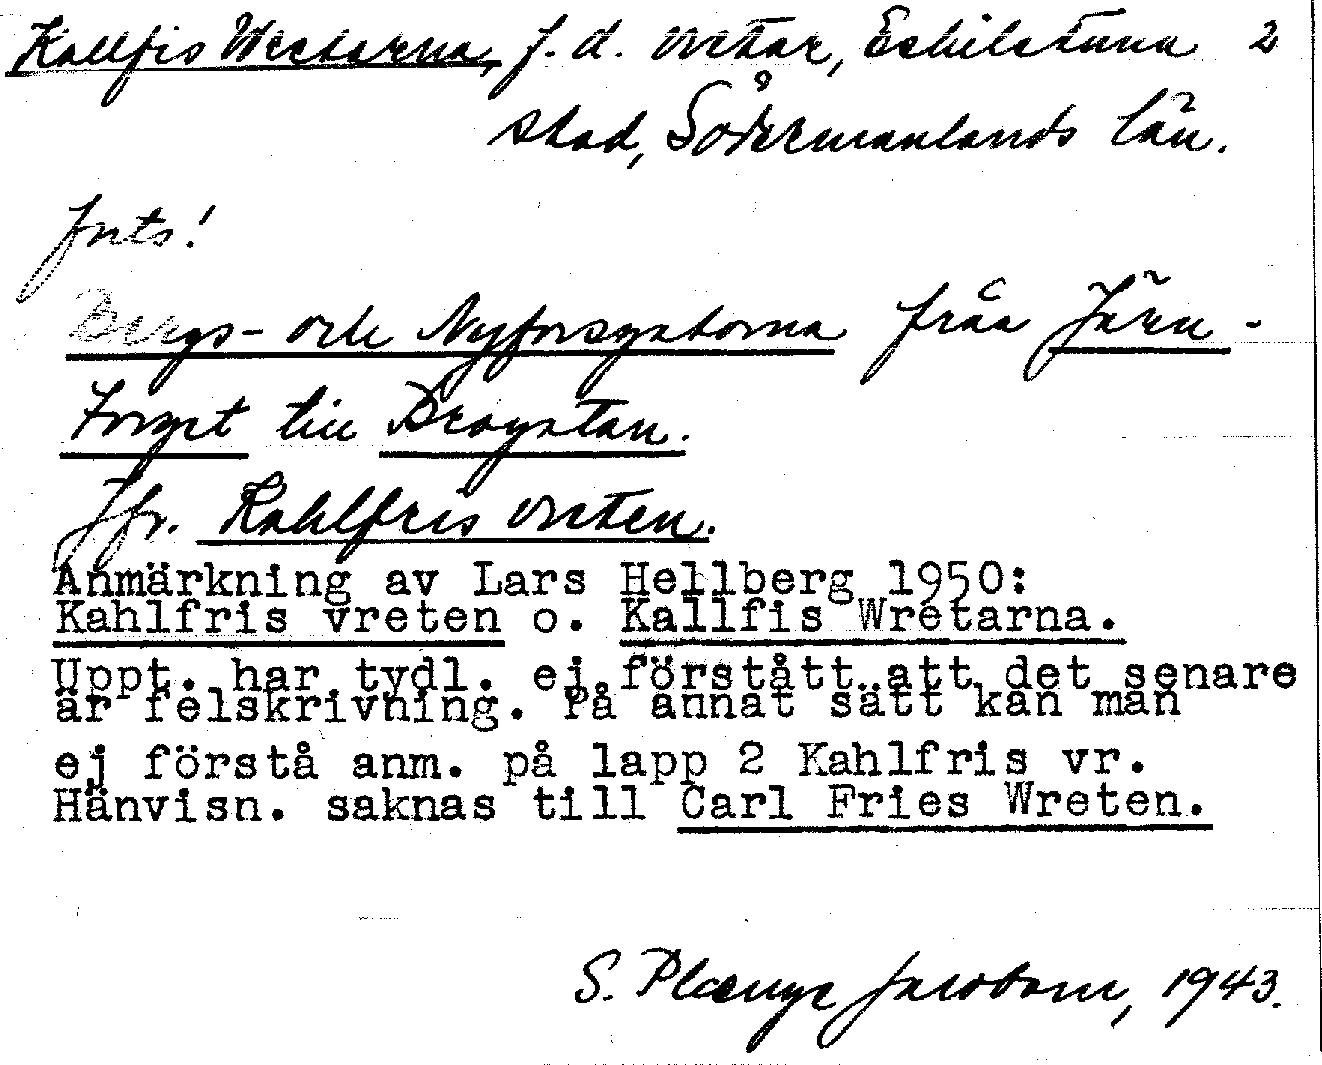 Kallfis Wretarna, f. d. vretar, Eskilstuna 2
stad, Södermanlands län.
forts!
Bergs- och Nyforsgatorna från Järn-
torget till Dragstan.
Jfr. Kahlfris vreten.
Anmärkning av Lars Hellberg 1950:
Kahlfris vreten o. Kallfis Wretarna.
Uppt. har tydl. ej förstått att det senare
är felskrivning. På annat sätt kan man
ej förstå anm. på lapp 2 Kahlfris vr.
Hänvisn. saknas till Carl Fries Wreten.
S. Plænge Jacobson, 1943.